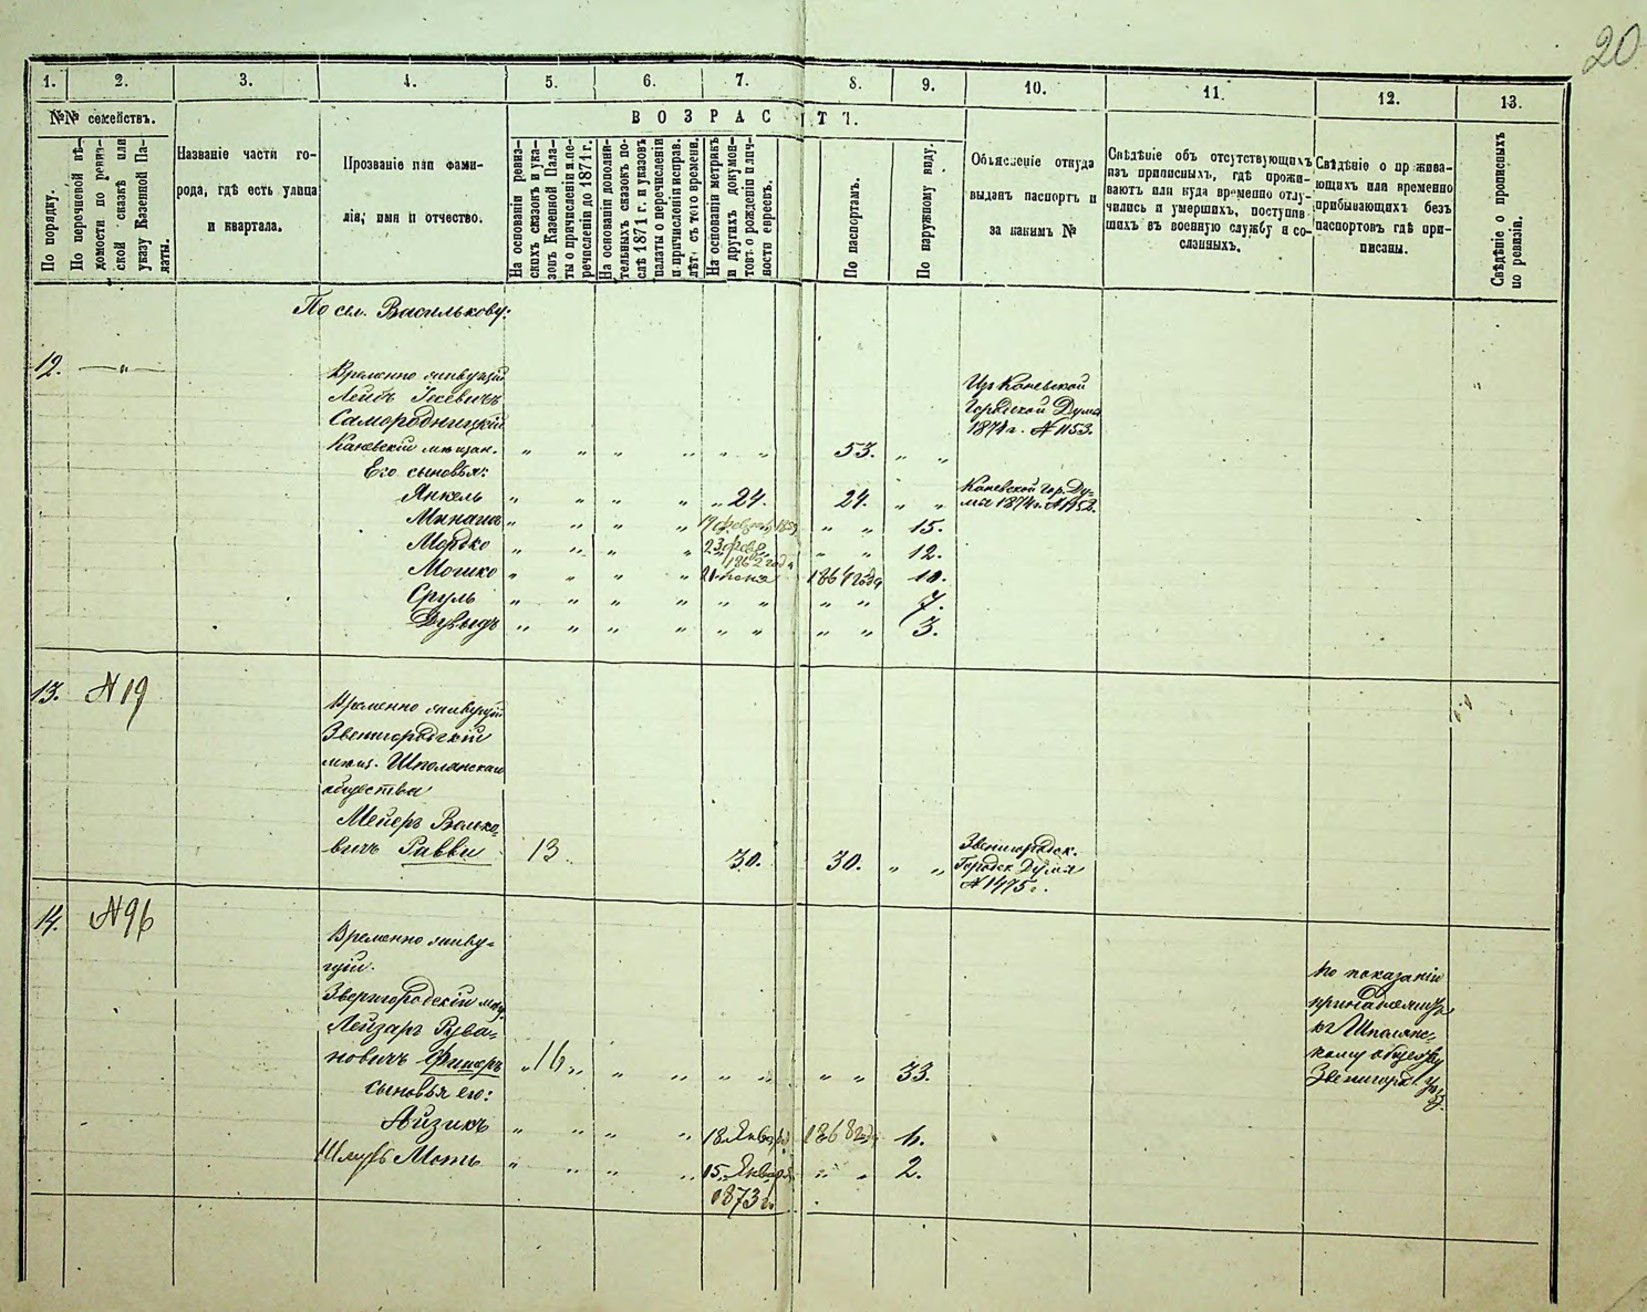 20
1. 2. 3. 4. 5. 6. 7. 8. 9. 10. 11. 12. 13.
№№ семействъ.
По порядку.
По перечневой вѣ-
домости по ревиз-
ской сказкѣ или
указу Казенной Па-
латы.
Названіе части го-
рода, гдѣ есть улица
и квартала.
Прозваніе или фами-
лія, имя и отчество.
ВОЗРАСТЪ.
На основаніи ревиз-
скихъ сказокъ и ука-
зовъ Казенной Пала-
ты о причисленіи и пе-
речисленіи до 1871 г.
На основаніи дополни-
тельныхъ сказокъ по-
слѣ 1871 г. и указовъ
палаты о перечисленіи
и причисленіи исправ.
лѣт. съ того времени.
На основаніи метрикъ
и другихъ докумен-
товъ о рожденіи лич-
ности евреевъ.
По паспортамъ.
По наружному виду.
Объясненіе откуда
выданъ паспортъ и
за какимъ №
Свѣдѣніе объ отсутствующихъ
изъ приписныхъ, гдѣ прожи-
ваютъ или куда временно отлу-
чились и умершихъ, поступив-
шихъ въ военную службу и со-
сланныхъ.
Свѣдѣніе о прожива-
ющихъ или временно
прибывающихъ безъ
паспортовъ гдѣ при-
писаны.
Свѣдѣніе о прописныхъ
по ревизіи.
По сел. Василькову:
12. — „ —
Временно живущій
Лейбъ Іосевичъ
Самородницкій
Каневскій мѣщан. „ „ „ „ „ „ 53. „ „
Изъ Каневской
Городской Думы
1874 г. № 1153.
Его сыновья:
Янкель „ „ „ „ „ 24. 24. „ „
Каневской Гор. Ду-
мы 1874 г. № 1152.
Минаша „ „ „ „ 17 февраля 1859 „ „ 15.
Мордко „ „ „ „ 23 февр. 1862 года „ „ 12.
Мошко „ „ „ „ 21 1864 года 10.
Сруль „ „ „ „ „ „ „ „ 7.
Дувыдъ „ „ „ „ „ „ „ „ 3.
13. № 19
Временно живущій
Звенигородскій
мѣщ. Шполянскаго
общества
Мейеръ Волко-
вичъ Равви 13. 30. 30. „ „
Звенигородск.
Городск. Думы
№ 1475
14. № 96
Временно живу-
щій
Звенигородскій мѣщ.
Лейзаръ Рува-
новичъ Фишеръ „ 16 „ „ „ „ „ „ „ 33.
По показанію
принадлежитъ
къ Шполянс-
кому обществу
Звенигород. уѣз.
сыновья его:
Айзикъ „ „ „ „ 18 Января 1868 года 6.
Шмуль Моть „ „ „ „ 15 Января „ „ 2.
1873 г.